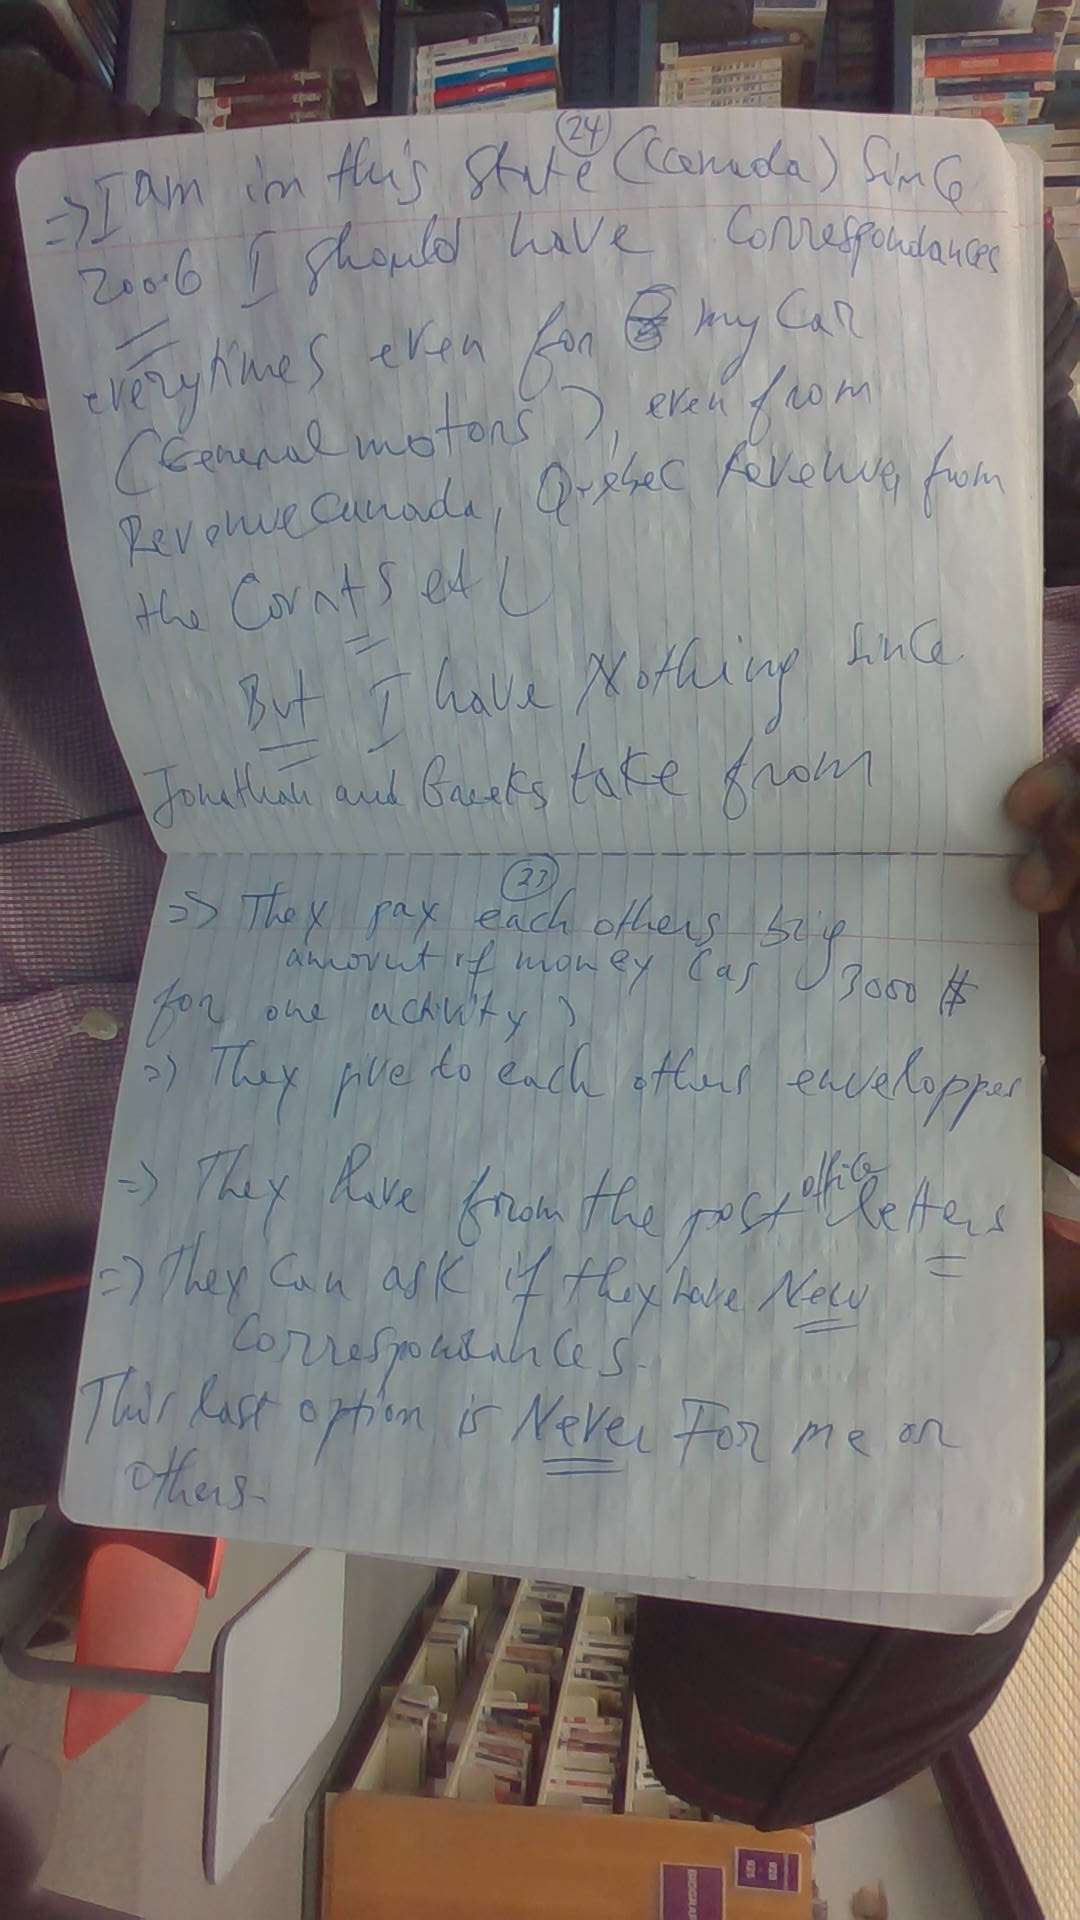 24
=> I am in this State (Canada) Since
2006 I should have Correspondances
everytimes even for my Car
(General motors), even from
Revenue Canada, Québec Revenue, from
the Courts etc
But I have Nothing since
Jonathan and Greeks take from
23
=> They pay each others big
amount of money (as 3000 $
for one activity)
=> They give to each others enveloppes
=> They have from the post office letters
=> They Can ask if they have New
Correspondances.
This last option is Never For me or
others.
BIOGRAP